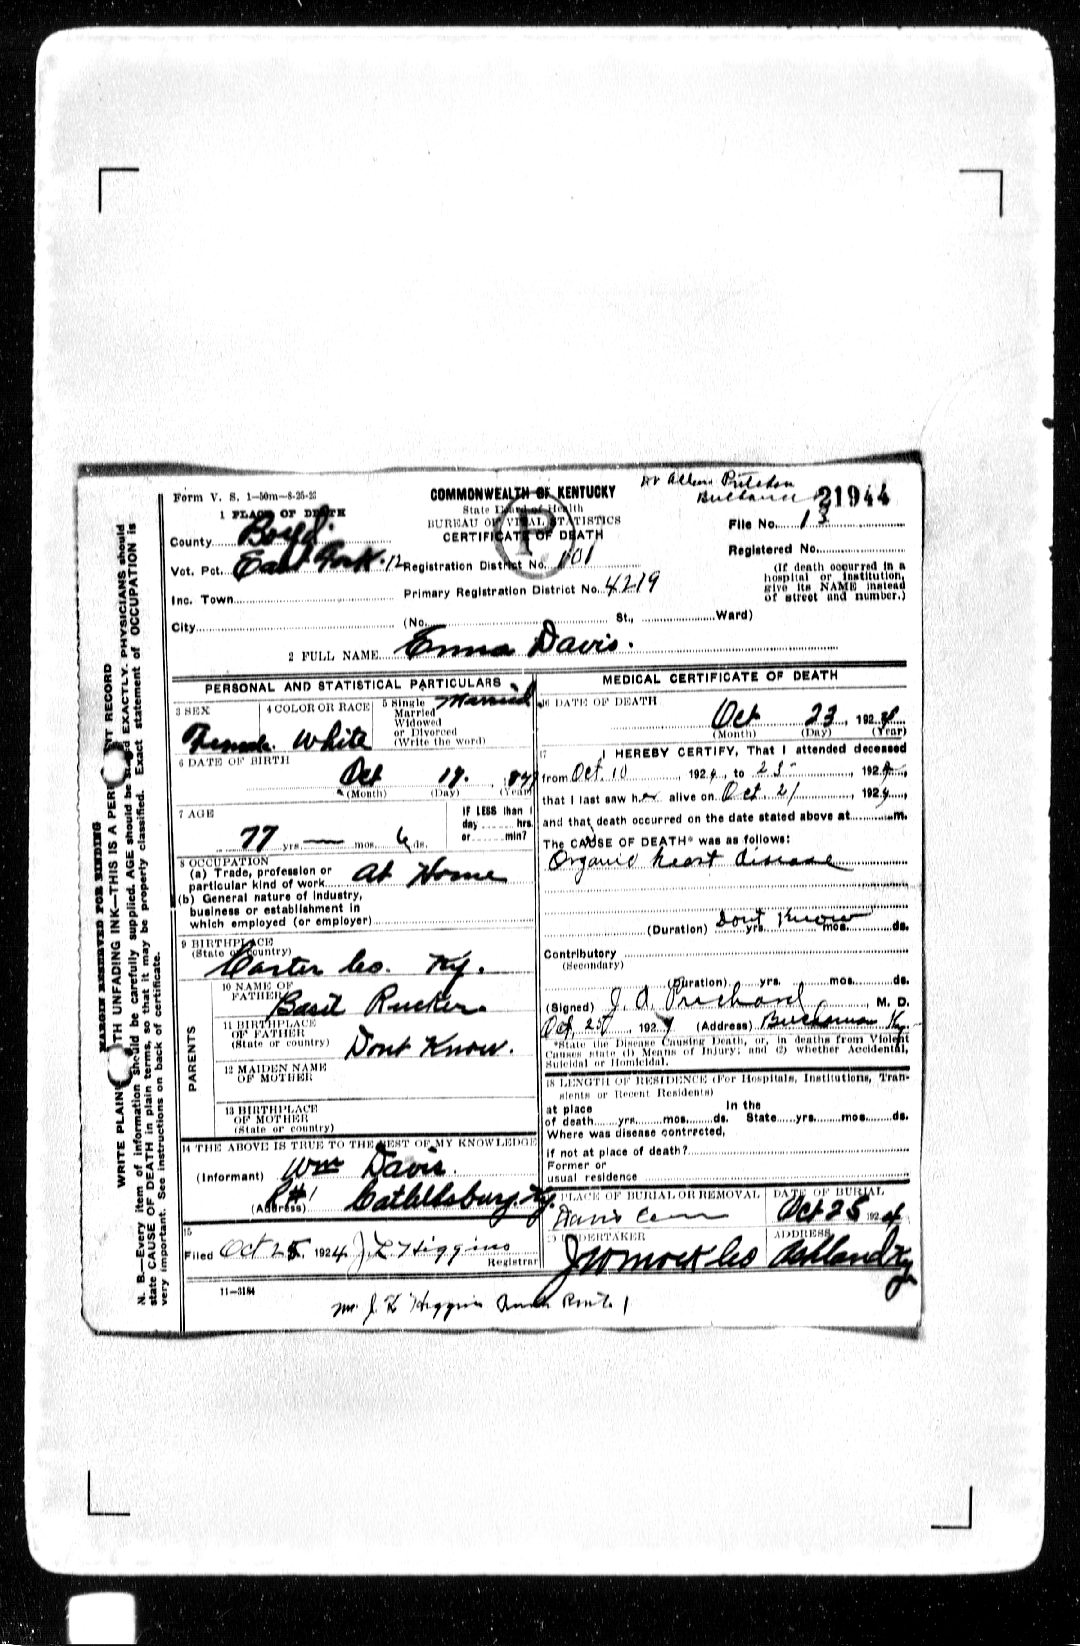 Form V. S. 1–50m–8-25-23
COMMONWEALTH OF KENTUCKY
State Board of Health
BUREAU OF VITAL STATISTICS
CERTIFICATE OF DEATH
P
21944
1 PLACE OF DEATH
County Boyd.
Vot. Pct. East Fork. 12
Inc. Town
City
Registration District No. 101
Primary Registration District No. 4219
(No. St., Ward)
File No. 13
Registered No.
(If death occurred in a
hospital or institution,
give its NAME instead
of street and number.)
2 FULL NAME Emma Davis.
PERSONAL AND STATISTICAL PARTICULARS
3 SEX
Female.
4 COLOR OR RACE
White
5 Single
Married
Widowed
or Divorced
(Write the word)
Married
6 DATE OF BIRTH
Oct 17. 1847
(Month) (Day) (Year)
7 AGE
77 yrs. — mos. 6 ds.
IF LESS than 1
day hrs.
or min?
8 OCCUPATION
(a) Trade, profession or
particular kind of work At Home
(b) General nature of industry,
business or establishment in
which employed (or employer)
9 BIRTHPLACE
(State or country)
Carter Co. Ky.
PARENTS
10 NAME OF
FATHER Basil Rucker.
11 BIRTHPLACE
OF FATHER
(State or country) Dont Know.
12 MAIDEN NAME
OF MOTHER
13 BIRTHPLACE
OF MOTHER
(State or country)
14 THE ABOVE IS TRUE TO THE BEST OF MY KNOWLEDGE
(Informant) Wm Davis.
(Address) R#1 Catlettsburg, Ky.
15
Filed Oct 25, 1924 J L Higgins
Registrar
11—3184
MEDICAL CERTIFICATE OF DEATH
16 DATE OF DEATH
Oct 23, 1924
(Month) (Day) (Year)
17
I HEREBY CERTIFY, That I attended deceased
from Oct. 10, 1924, to 23, 1924,
that I last saw her alive on Oct. 21, 1924,
and that death occurred on the date stated above at m.
The CAUSE OF DEATH* was as follows:
Organic heart disease
(Duration) Dont Know yrs. mos. ds.
Contributory
(Secondary)
(Duration) yrs. mos. ds.
(Signed) J. A. Prichard, M. D.
Oct, 25, 1924 (Address) Buchanan Ky.
*State the Disease Causing Death, or, in deaths from Violent
Causes state (1) Means of Injury; and (2) whether Accidental,
Suicidal or Homicidal.
18 LENGTH OF RESIDENCE (For Hospitals, Institutions, Tran-
sients or Recent Residents)
at place In the
of death yrs. mos. ds. State yrs. mos. ds.
Where was disease contracted,
if not at place of death?
Former or
usual residence
19 PLACE OF BURIAL OR REMOVAL
Davis Cem
DATE OF BURIAL
Oct 25 1924
20 UNDERTAKER
J W Mock Co
ADDRESS
Ashland Ky
Mr. J. L Higgins Route 1
MARGIN RESERVED FOR BINDING
WRITE PLAINLY WITH UNFADING INK—THIS IS A PERMANENT RECORD
N. B.—Every item of information should be carefully supplied. AGE should be stated EXACTLY. PHYSICIANS should
state CAUSE OF DEATH in plain terms, so that it may be properly classified. Exact statement of OCCUPATION is
very important. See instructions on back of certificate.